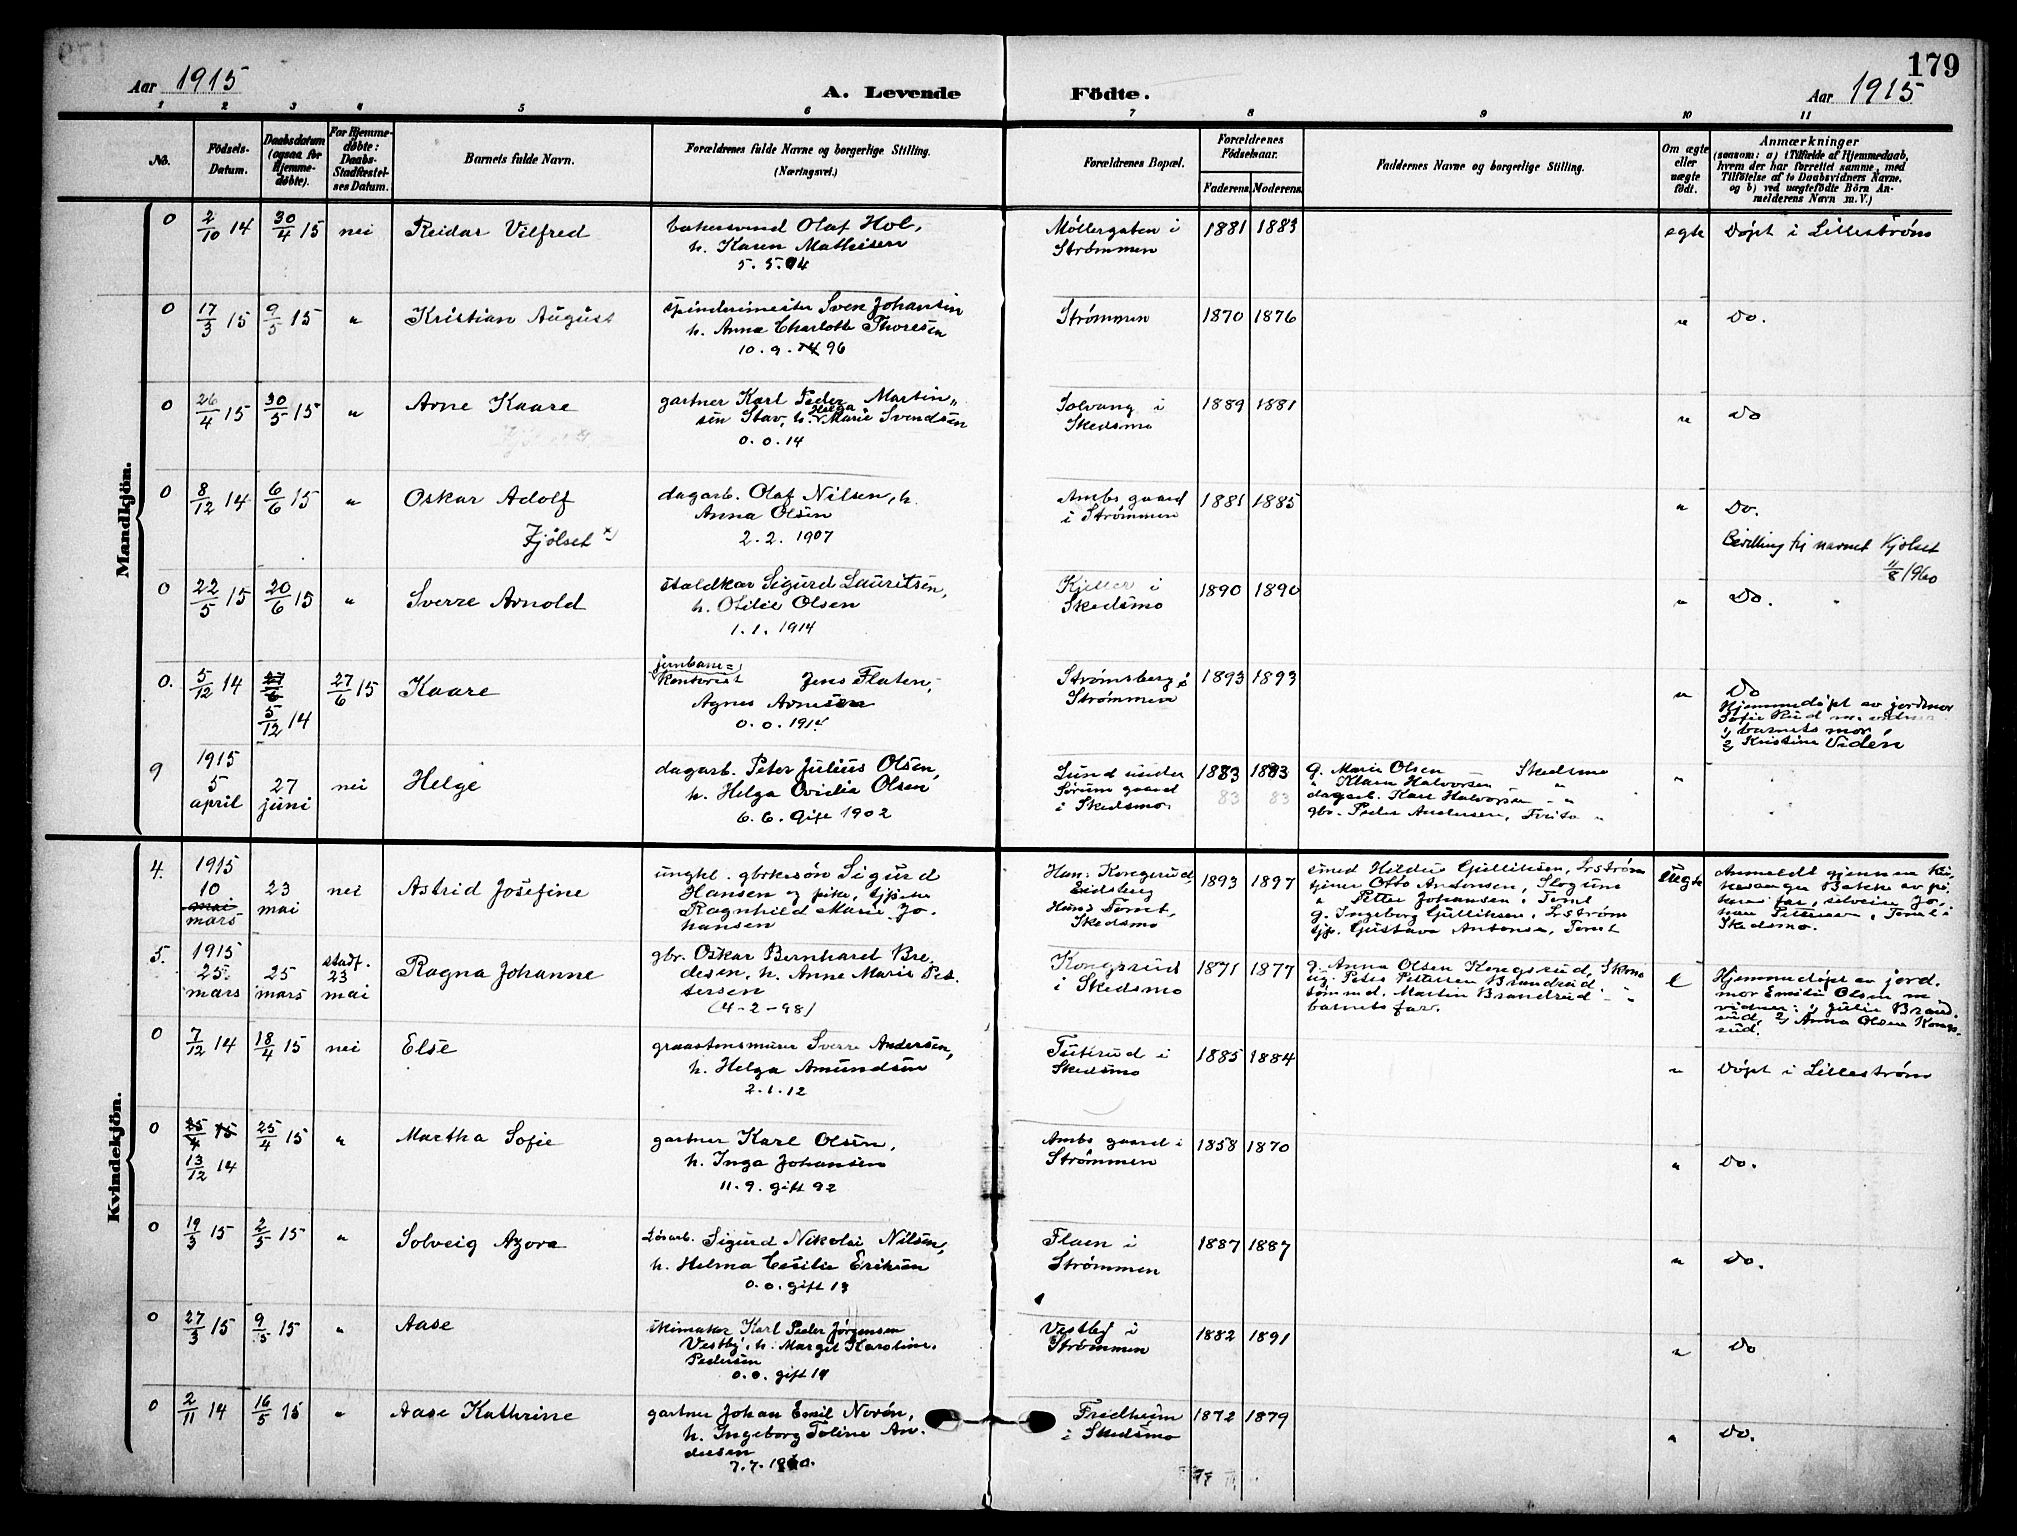 179
Aar 1915
A. Levende Födte.
Aar 1915
1 2 3 4 5 6 7 8 9 10 11
No.
Födsels-Datum.
Daabsdatum (ogsaa for Hjemme-døbte).
For Hjemme-døbte: Daabs-Stadfæstel-ses Datum.
Barnets fulde Navn.
Forældrenes fulde Navne og borgerlige Stilling.
(Næringsvei.)
Forældrenes Bopæl.
Forældrenes Födselsaar.
Faderens. Moderens.
Faddernes Navne og borgerlige Stilling.
Om ægte eller uægte født.
Anmærkninger
(saasom: a) i Tilfælde af Hjemmedaab,
hvem der har forrettet samme, med
Tilföielse af to Daabsvidners Navne.
og b) ved uægtefödte Börn An-
melderens Navn m.V.)
Mandkjön.
0 2/10 14 30/4 15 nei Reidar Vilfred
bakersvend Olaf Hol,
h. Karen Mathisen
5. 5. 04
Møllergaten i
Strømmen
1881 1883
egte
Døpt i Lillestrøm
0 17/3 15 9/5 15 " Kristian August
spinderimester Sven Johansen
h. Anna Charlotte Thoresen
10. 9. 96
Strømmen
1870 1876
" Do.
0 26/4 15 30/5 15 " Arne Kaare
gartner Karl Peder Martin-
sen Stav, h. Helga Marie Svendsen
0. 0. 14
Solvang i
Skedsmo
1889 1881
" Do
0 8/12 14 6/6 15 " Oskar Adolf
Kjølset x)
dagarb. Olaf Nilsen, h.
Anna Olsen
2. 2. 1907
Ambs gaard
i Strømmen
1881 1885
" Do.
Bevilling til navnet Kjølset
11/8 1960
0 22/5 15 20/6 15 " Sverre Arnold
staldkar Sigurd Lauritsen,
h. Otilie Olsen
1. 1. 1914
Kjeller i
Skedsmo
1890 1890
" Do.
0. 5/12 14 27/6 5/12 14 27/6 15 Kaare
jernbane-
kontorist Jens Flaten,
Agnes Arnesen
0. 0. 1914
Strømsberg i
Strømmen
1893 1893
" Do
Hjemmedøpt av jordmor
Sofie Rud m. vidner
1, barnets mor
2, Kristine Viden
9 1915 5 april 27 juni nei Helge
dagarb. Peter Julius Olsen,
h. Helga Ovidia Olsen
6. 6. Gift 1902
Lund under
Sørum gaard
i Skedsmo.
1883 1883
83 83
g. Marie Olsen Skedsmo
" Klara Halvorsen "
dagarb. Karl Halvorsen "
gbr. Peder Andersen, Tveita "
"
Kvindekjön.
4. 1915 10 mai mars 23 mai nei Astrid Josefine
ungkl. gbrkesøn Sigurd
Hansen og pike, tjpike
Ragnhild Marie Jo-
hansen
Han: Kongerud,
Eidsberg
Hun: Tomt,
Skedsmo
1893 1897
smed Hilde Gulliksen, Lstrøm
tjener Otto Antonsen, Slogum
" Petter Johansen, Tomt
g. Ingeborg Gulliksen, Lstrøm
tjp. Gustava Antonsen, Tomt
uegte
Anmeldt gjennem Kir-
kesanger Bakke av pi-
kens far, selveier Jo-
han Pettersen, Tomt i
Skedsmo.
5. 1915 25 mars 25 mars stadf. 23 mai Ragna Johanne
gbr. Oskar Bernhard Bre-
desen, h. Anne Marie Pet-
tersen
(4-2-98)
Kongsrud
i Skedsmo
1871 1877
g. Anna Olsen Kongsrud, Skdsmo
ug. Petra Pettersen Brandrud
tømmd. Martin Brandrud " "
barnets far.
e
Hjemmedøpt av jord-
mor Emilie Olsen m
vidner: 1, Julie Brand-
rud, 2, Anna Olsen Kongs-
rud.
0 7/12 14 18/4 15 nei Else
graastensmurer Sverre Andersen,
h. Helga Amundsen
2. 1. 12
Tuterud i
Skedsmo
1885 1884
" Døpt i Lillestrøm
0 25/4 15 13/12 14 25/4 15 " Martha Sofie
gartner Karl Olsen,
h. Inga Johansen
11. 9. gift 92
Ambs gaard i
Strømmen
1858 1870
" Do.
0 19/3 15 2/5 15 " Solveig Azora
Løsarb. Sigurd Nikolai Nilsen,
h. Helma Cecilie Eriksen
0. 0. gift 13
Flaen i
Strømmen
1887 1887
" Do.
0 27/3 15 9/5 15 " Aase
skimaker Karl Peder Jørgensen
Vestby, h. Margit Karoline
Pedersen
0. 0. gift 14
Vestby i
Strømmen
1882 1891
" Do
0 2/11 14 16/5 15 " Aase Kathrine
gartner Johan Emil Norén,
h. Ingeborg Toline An-
dersen
7. 7. 1900.
Fredheim
i Skedsmo
1872 1879
" Do.